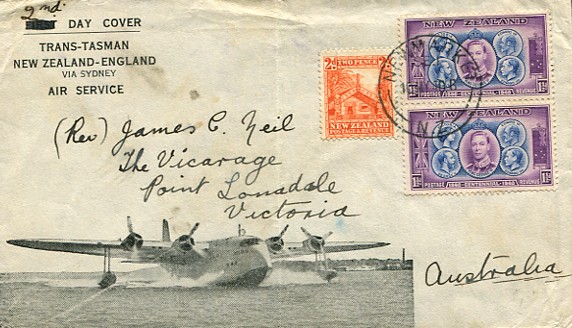 2nd
FIRST DAY COVER
TRANS-TASMAN
NEW ZEALAND-ENGLAND
VIA SYDNEY
AIR SERVICE
(Rev) James C. Neil
The Vicarage
Point Lonsdale
Victoria
Australia
2D TWO PENCE
NEW ZEALAND
POSTAGE & REVENUE
NEW ZEALAND
POSTAGE 1840 CENTENNIAL 1940 REVENUE
NEW ZEALAND
1½ POSTAGE 1840 CENTENNIAL 1940 REVENUE 1½
NEWMARKET
N.Z.